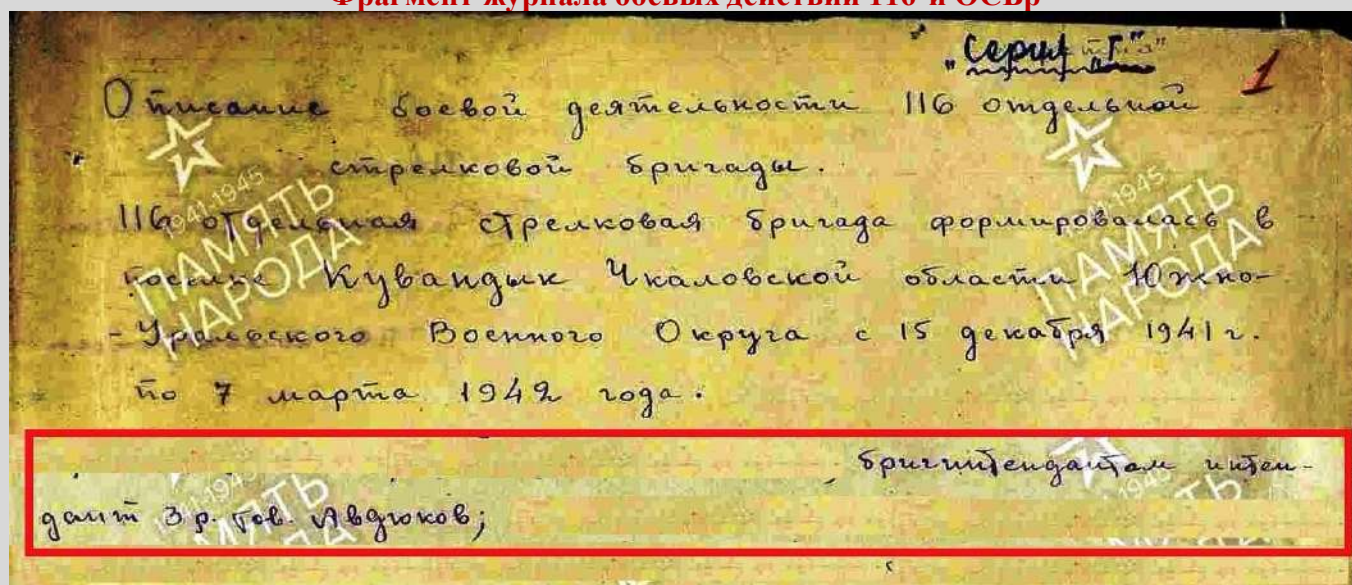 Фрагмент журнала боевых действий 116-й ОСБр
"Серия "Г"
1
Описание боевой деятельности 116 отдельной
стрелковой бригады.
116 отдельная стрелковая бригада формировалась в
поселке Кувандык Чкаловской области Южно-
-Уральского Военного Округа с 15 декабря 1941 г.
по 7 марта 1942 года.
, бригинтендантом интен-
дант 3 р. тов. Авдюков;
1941-1945
ПАМЯТЬ
НАРОДА
1941-1945
ПАМЯТЬ
НАРОДА